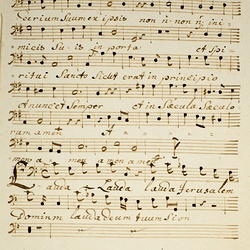 teerium suum ex ipsis non n: non n: ini-
micis Su-is in porta et Spi-
ritui Sancto Sicut erat in principio
et nunc et Semper et in Sæcula Sæculo
rum amen A
men a men amen amen
Lauda Lauda lauda Jerusalem
Dominum lauda deum tuum Sion